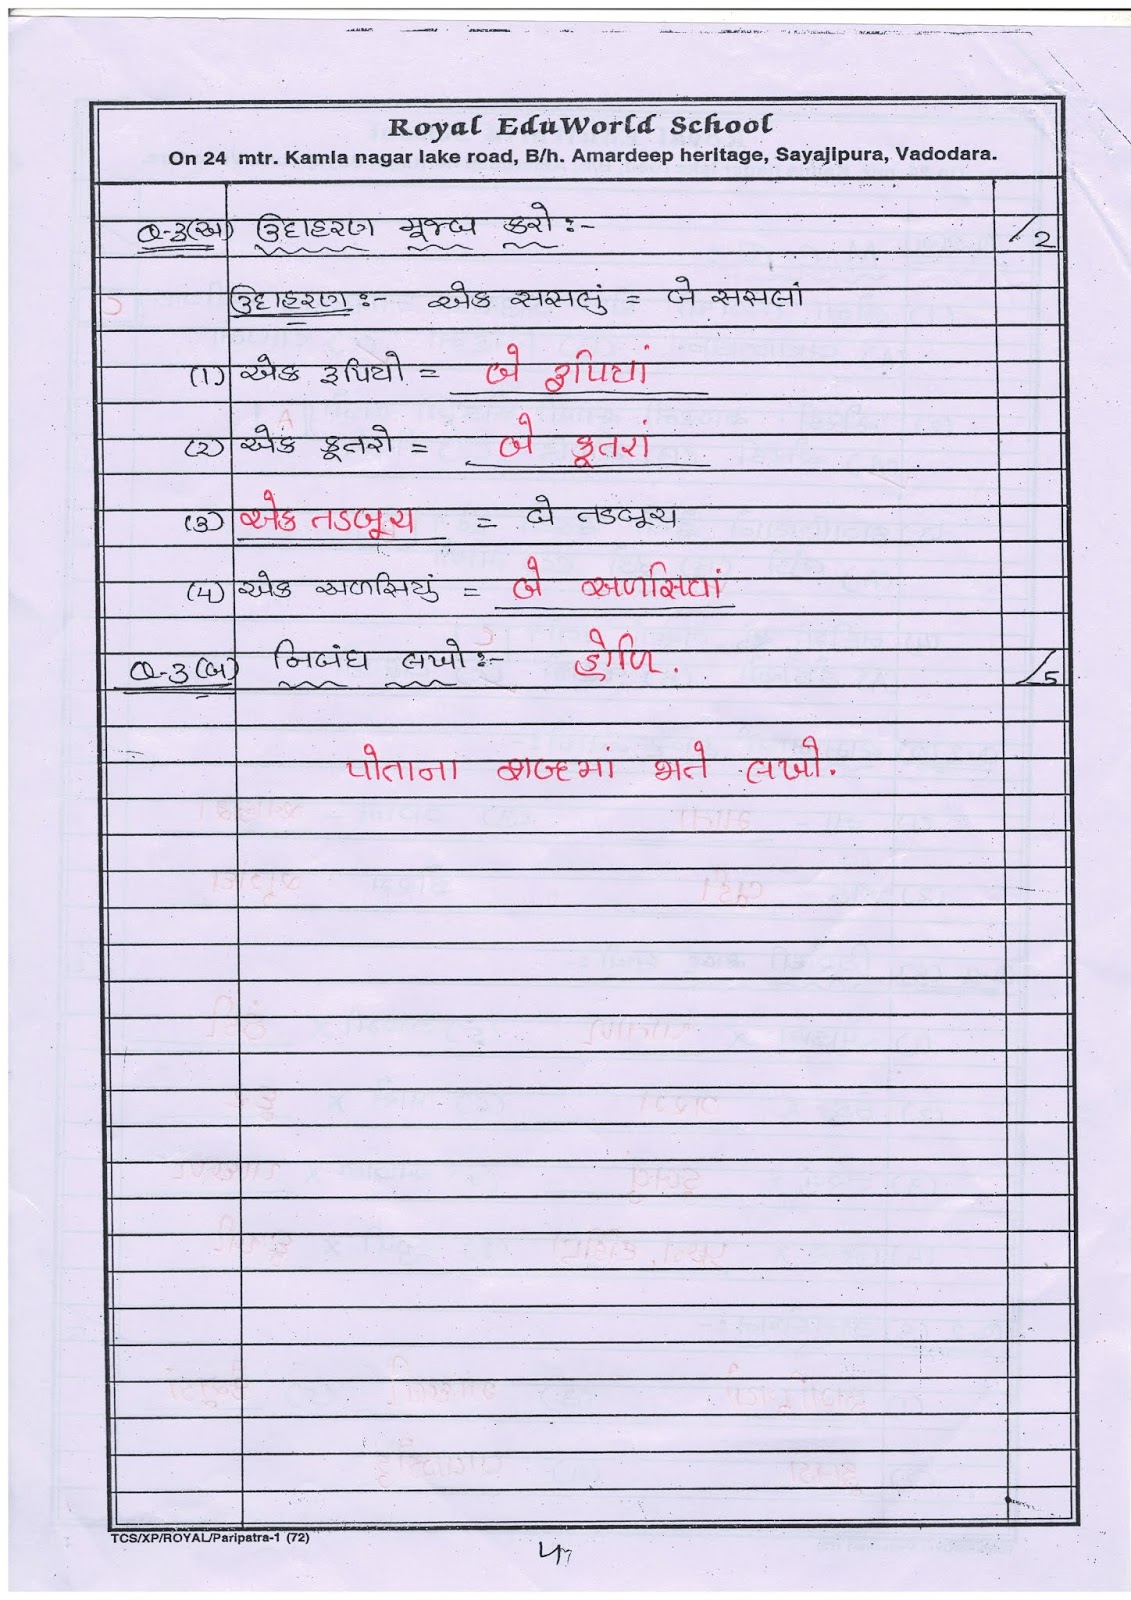 Royal EduWorld School
On 24 mtr. Kamla nagar lake road, B/h. Amardeep heritage, Sayajipura, Vadodara.
Q-3(અ) ઉદાહરણ મૂજબ કરો:- /2
ઉદાહરણ:- એક સસલું = બે સસલાં
(1) એક રૂપિયો = બે રૂપિયાં
(2) એક કૂતરો = બે કૂતરાં
(3) એક તડબૂચ = બે તડબૂચ
(4) એક અળસિયું = બે અળસિયાં
Q-3(બ) નિબંધ લખો:- હોળિ. /5
પોતાના શબ્દમાં જાતે લખો.
TCS/XP/ROYAL/Paripatra-1 (72)